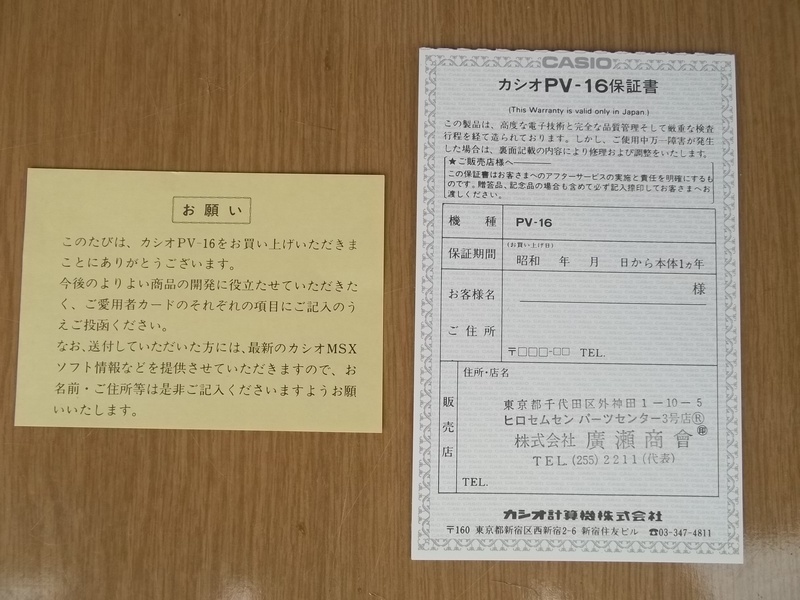 お願い
このたびは、カシオPV-16をお買い上げいただきま
ことにありがとうございます。
今後のよりよい商品の開発に役立たせていただきた
く、ご愛用者カードのそれぞれの項目にご記入のう
えご投函ください。
なお、送付していただいた方には、最新のカシオMSX
ソフト情報などを提供させていただきますので、お
名前・ご住所等は是非ご記入くださいますようお願
いいたします。
CASIO
カシオPV-16保証書
(This Warranty is valid only in Japan.)
この製品は、高度な電子技術と完全な品質管理そして厳重な検査
行程を経て造られております。しかし、ご使用中万一障害が発生
した場合は、裏面記載の内容により修理および調整をいたします。
★ご販売店様へ
この保証書はお客さまへのアフターサービスの実施と責任を明確にするも
のです。贈答品、記念品の場合も含めて必ず記入捺印してお客さまへお
渡しください。
機種 PV-16
保証期間 (お買い上げ日) 昭和 年 月 日から本体1ヵ年
お客様名 様
ご住所
〒□□□-□□ TEL.
販売店
住所・店名
東京都千代田区外神田1-10-5
ヒロセムセン パーツセンター3号店Ⓡ
株式会社 廣瀬商會 ㊞
TEL.(255)2211(代表)
TEL.
カシオ計算機株式会社
〒160 東京都新宿区西新宿2-6 新宿住友ビル ☎03-347-4811